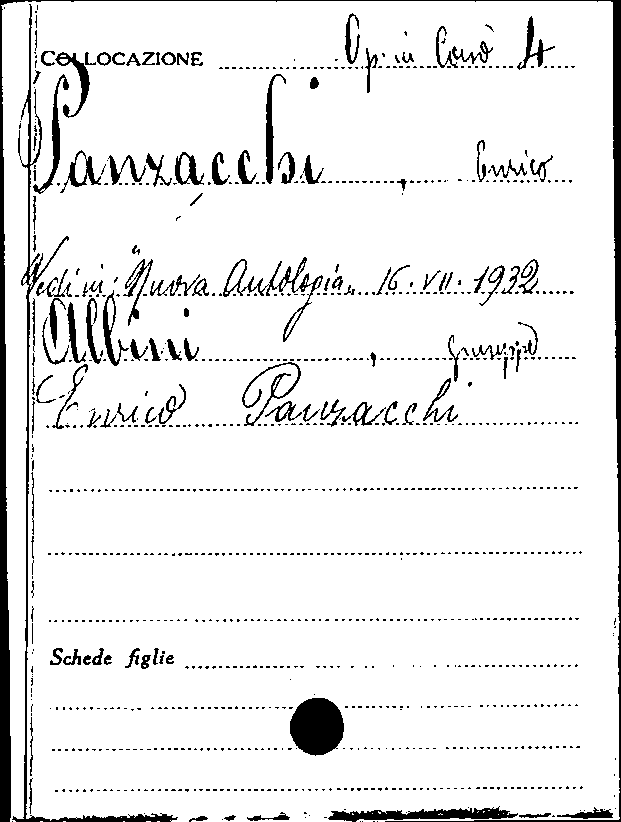 COLLOCAZIONE Op. in Corso 4
Panzacchi, Enrico
Vedi in: "Nuova Antologia„ 16.VII.1932
Albini, Giuseppe
Enrico Panzacchi
Schede figlie